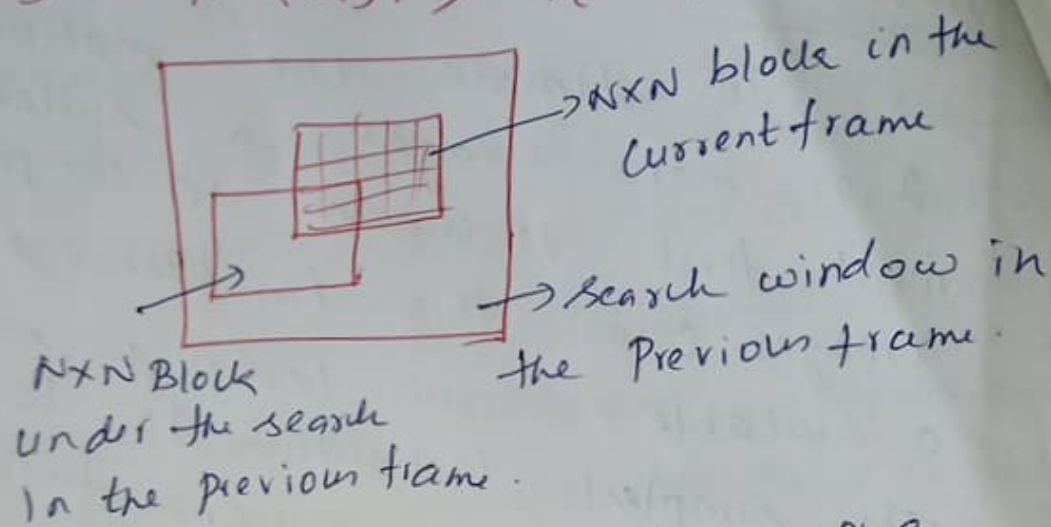 NXN block in the
Current frame
search window in
the Previous frame.
NXN Block
under the search
In the previous frame.